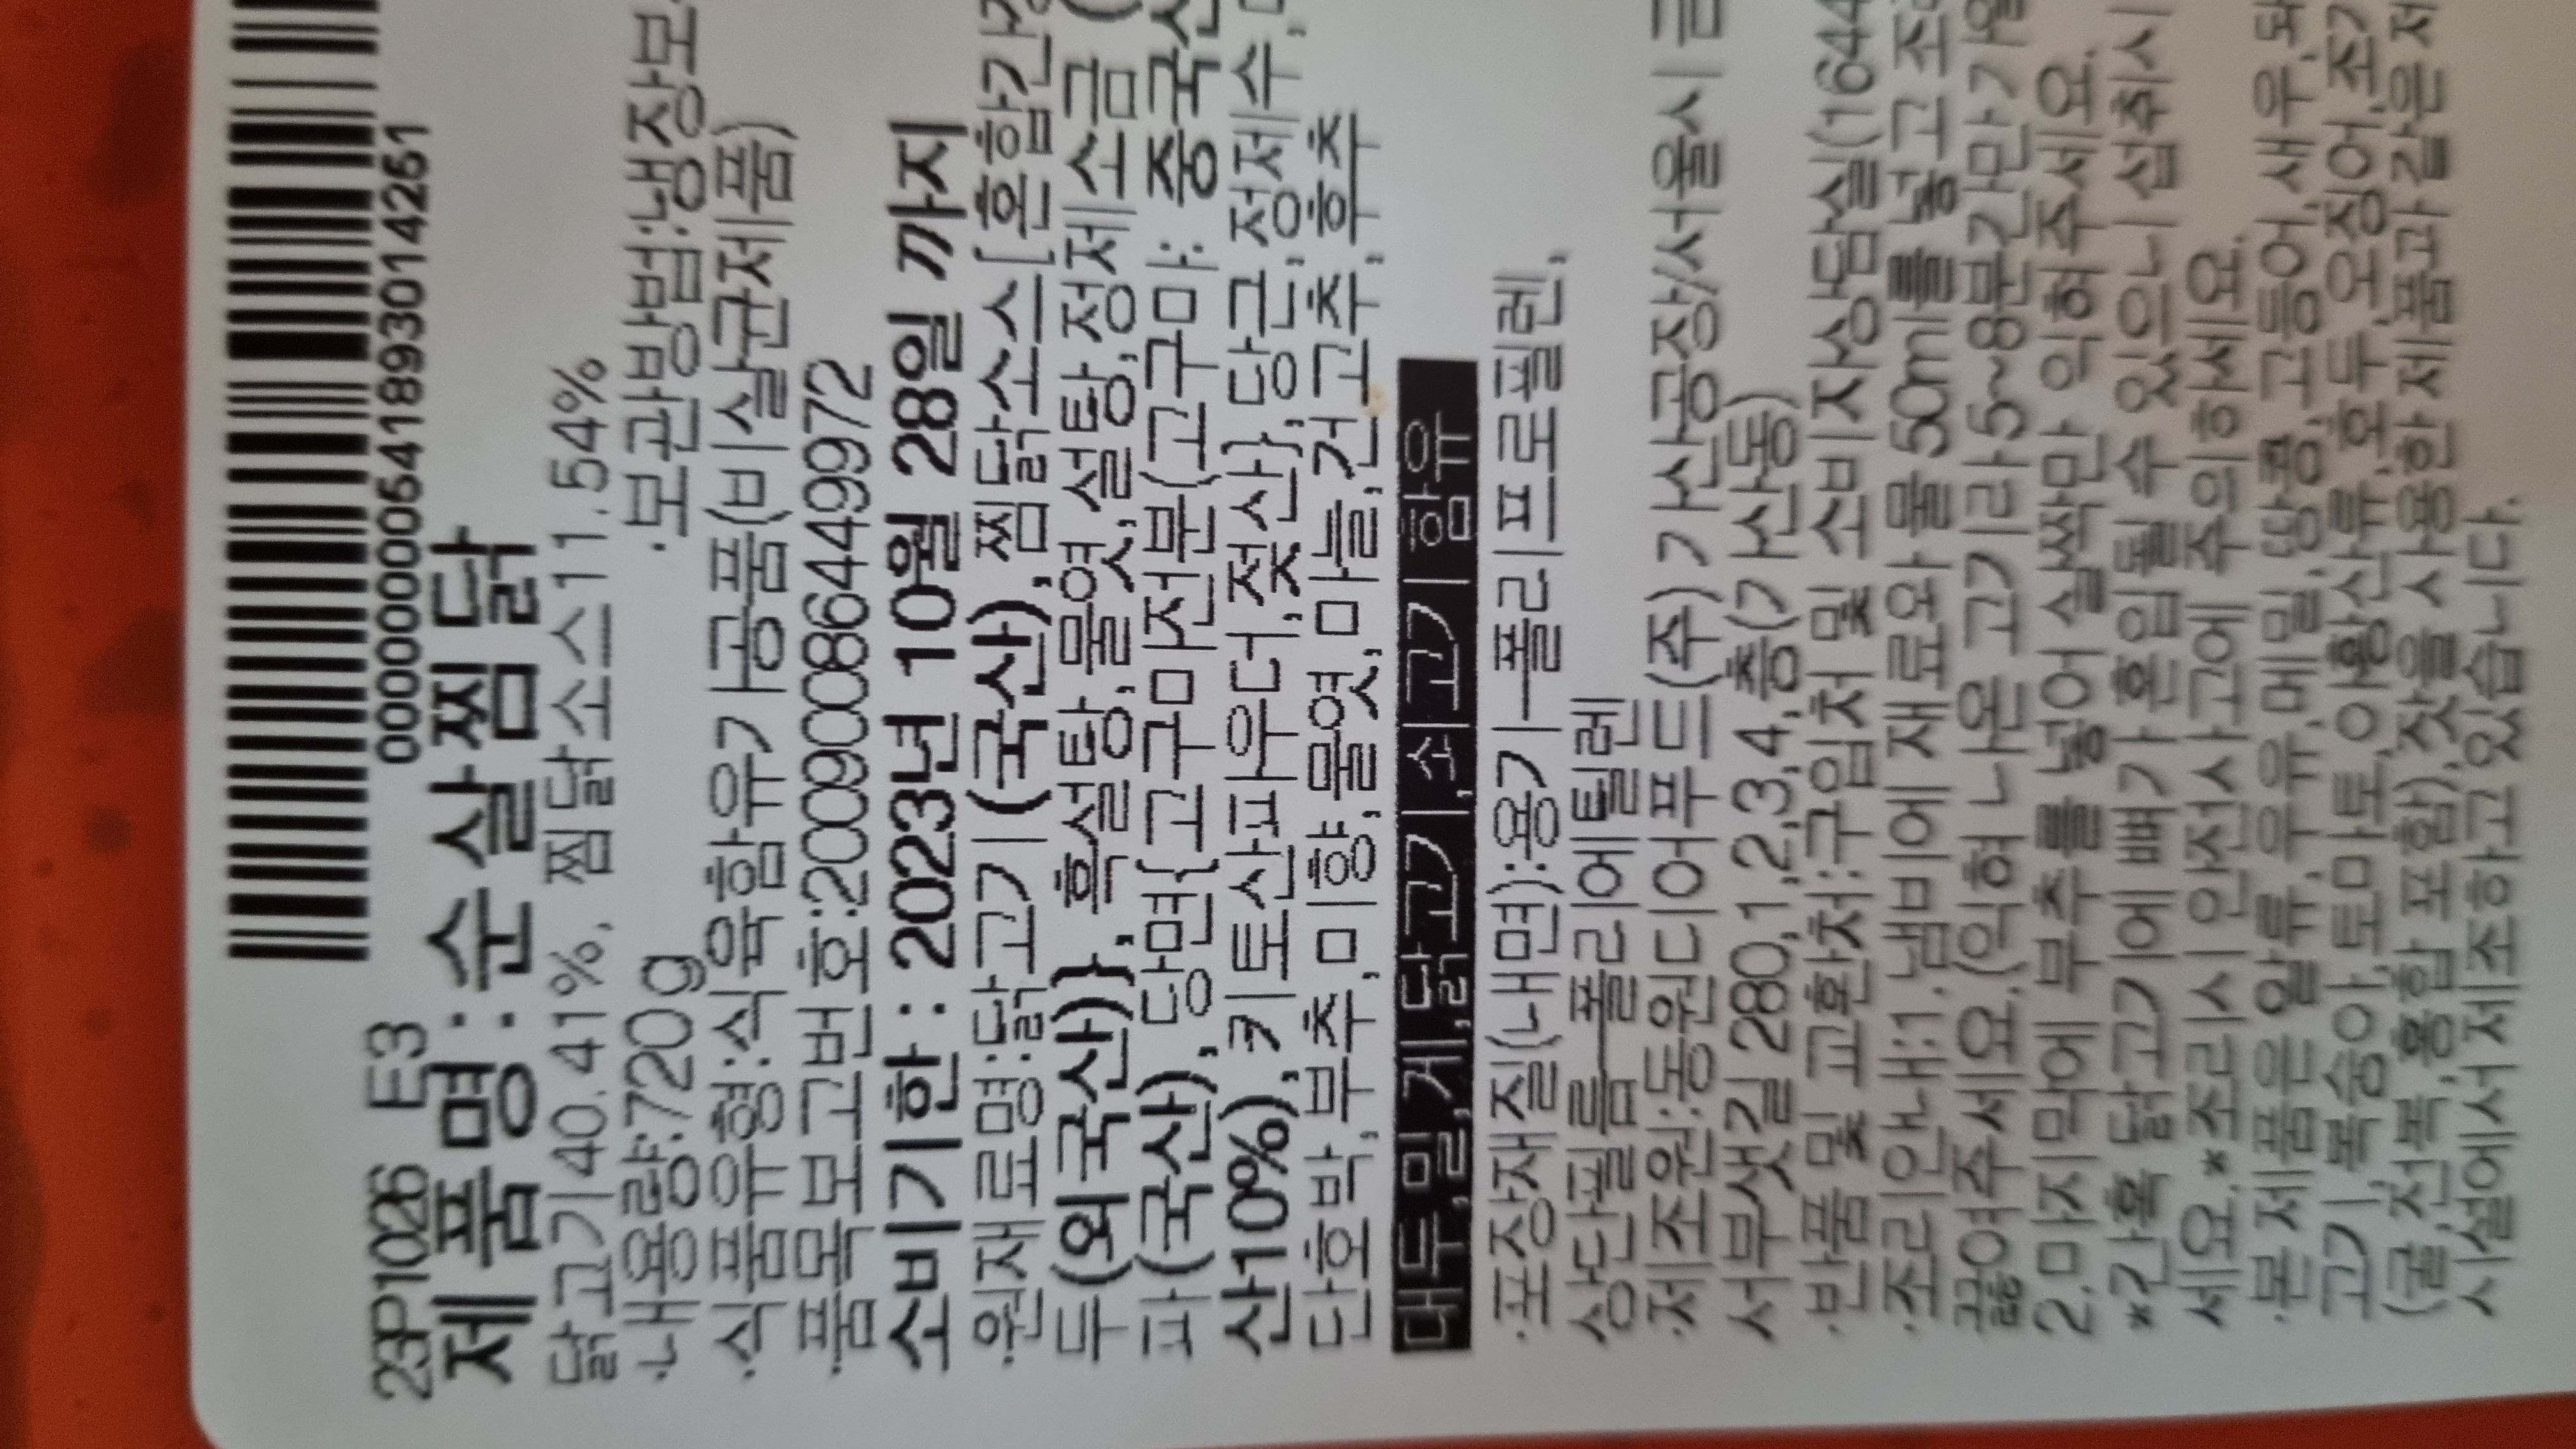 0000000054189301 4251
23P1026 E3
제 품 명 : 순 살 찜 닭
닭고기40.41%, 찜닭소스11.54%
·내용량:720g ·보관방법:냉장보
·식품유형:식육함유가공품(비살균제품)
·품목보고번호:20090086449972
소비기한 : 2023년 10월 28일 까지
·원재료명:닭고기(국산), 찜닭소스[혼합간장
두(외국산)}, 흑설탕,물엿,설탕,정제소금(
파(국산), 당면{고구마전분(고구마: 중국산
산10%),키토산파우더,젖산},당근,정제수,
단호박,부추,미향,물엿,마늘,건고추,후추
대두,밀,게,닭고기,쇠고기 함유
·포장재질(내면):용기-폴리프로필렌,
상단필름-폴리에틸렌
·제조원:동원디어푸드(주)가산공장/서울시 금
서부샛길 280,1,2,3,4,층(가산동)
·반품 및 교환처:구입처 및 소비자상담실(1644
·조리안내:1.냄비에 재료와 물50ml를 넣고 조
끓여주세요.(익혀 나온 고기라5~8분간만 가열
2.마지막에 부추를 넣어 살짝만 익혀주세요.
*간혹 닭고기에 뼈가 혼입될 수 있으니 섭취시
세요.*조리시 안전사고에 주의하세요.
·본 제품은 알류,우유,메밀,땅콩,고등어,새우,돼
고기,복숭아,토마토,아황산류,호두,오징어,조개
(굴,전복,홍합 포함),잣을 사용한 제품과 같은 제
시설에서 제조하고 있습니다.